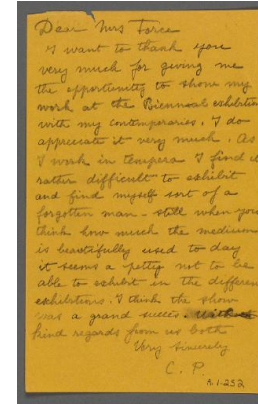 Dear Mrs Force
I want to thank you
very much for giving me
the opportunity to show my
work at the Biennial exhibition
with my contemporaries. I do
appreciate it very much. As
I work in tempera I find it
rather difficult to exhibit
and find myself sort of a
forgotten man - still when you
think how much the medium
is beautifully used to day
it seems a petty not to be
able to exhibit in the differen
exhibitions. I think the show
was a grand succes.
kind regards from us both
Very Sincerely
C. P.
A.1.252